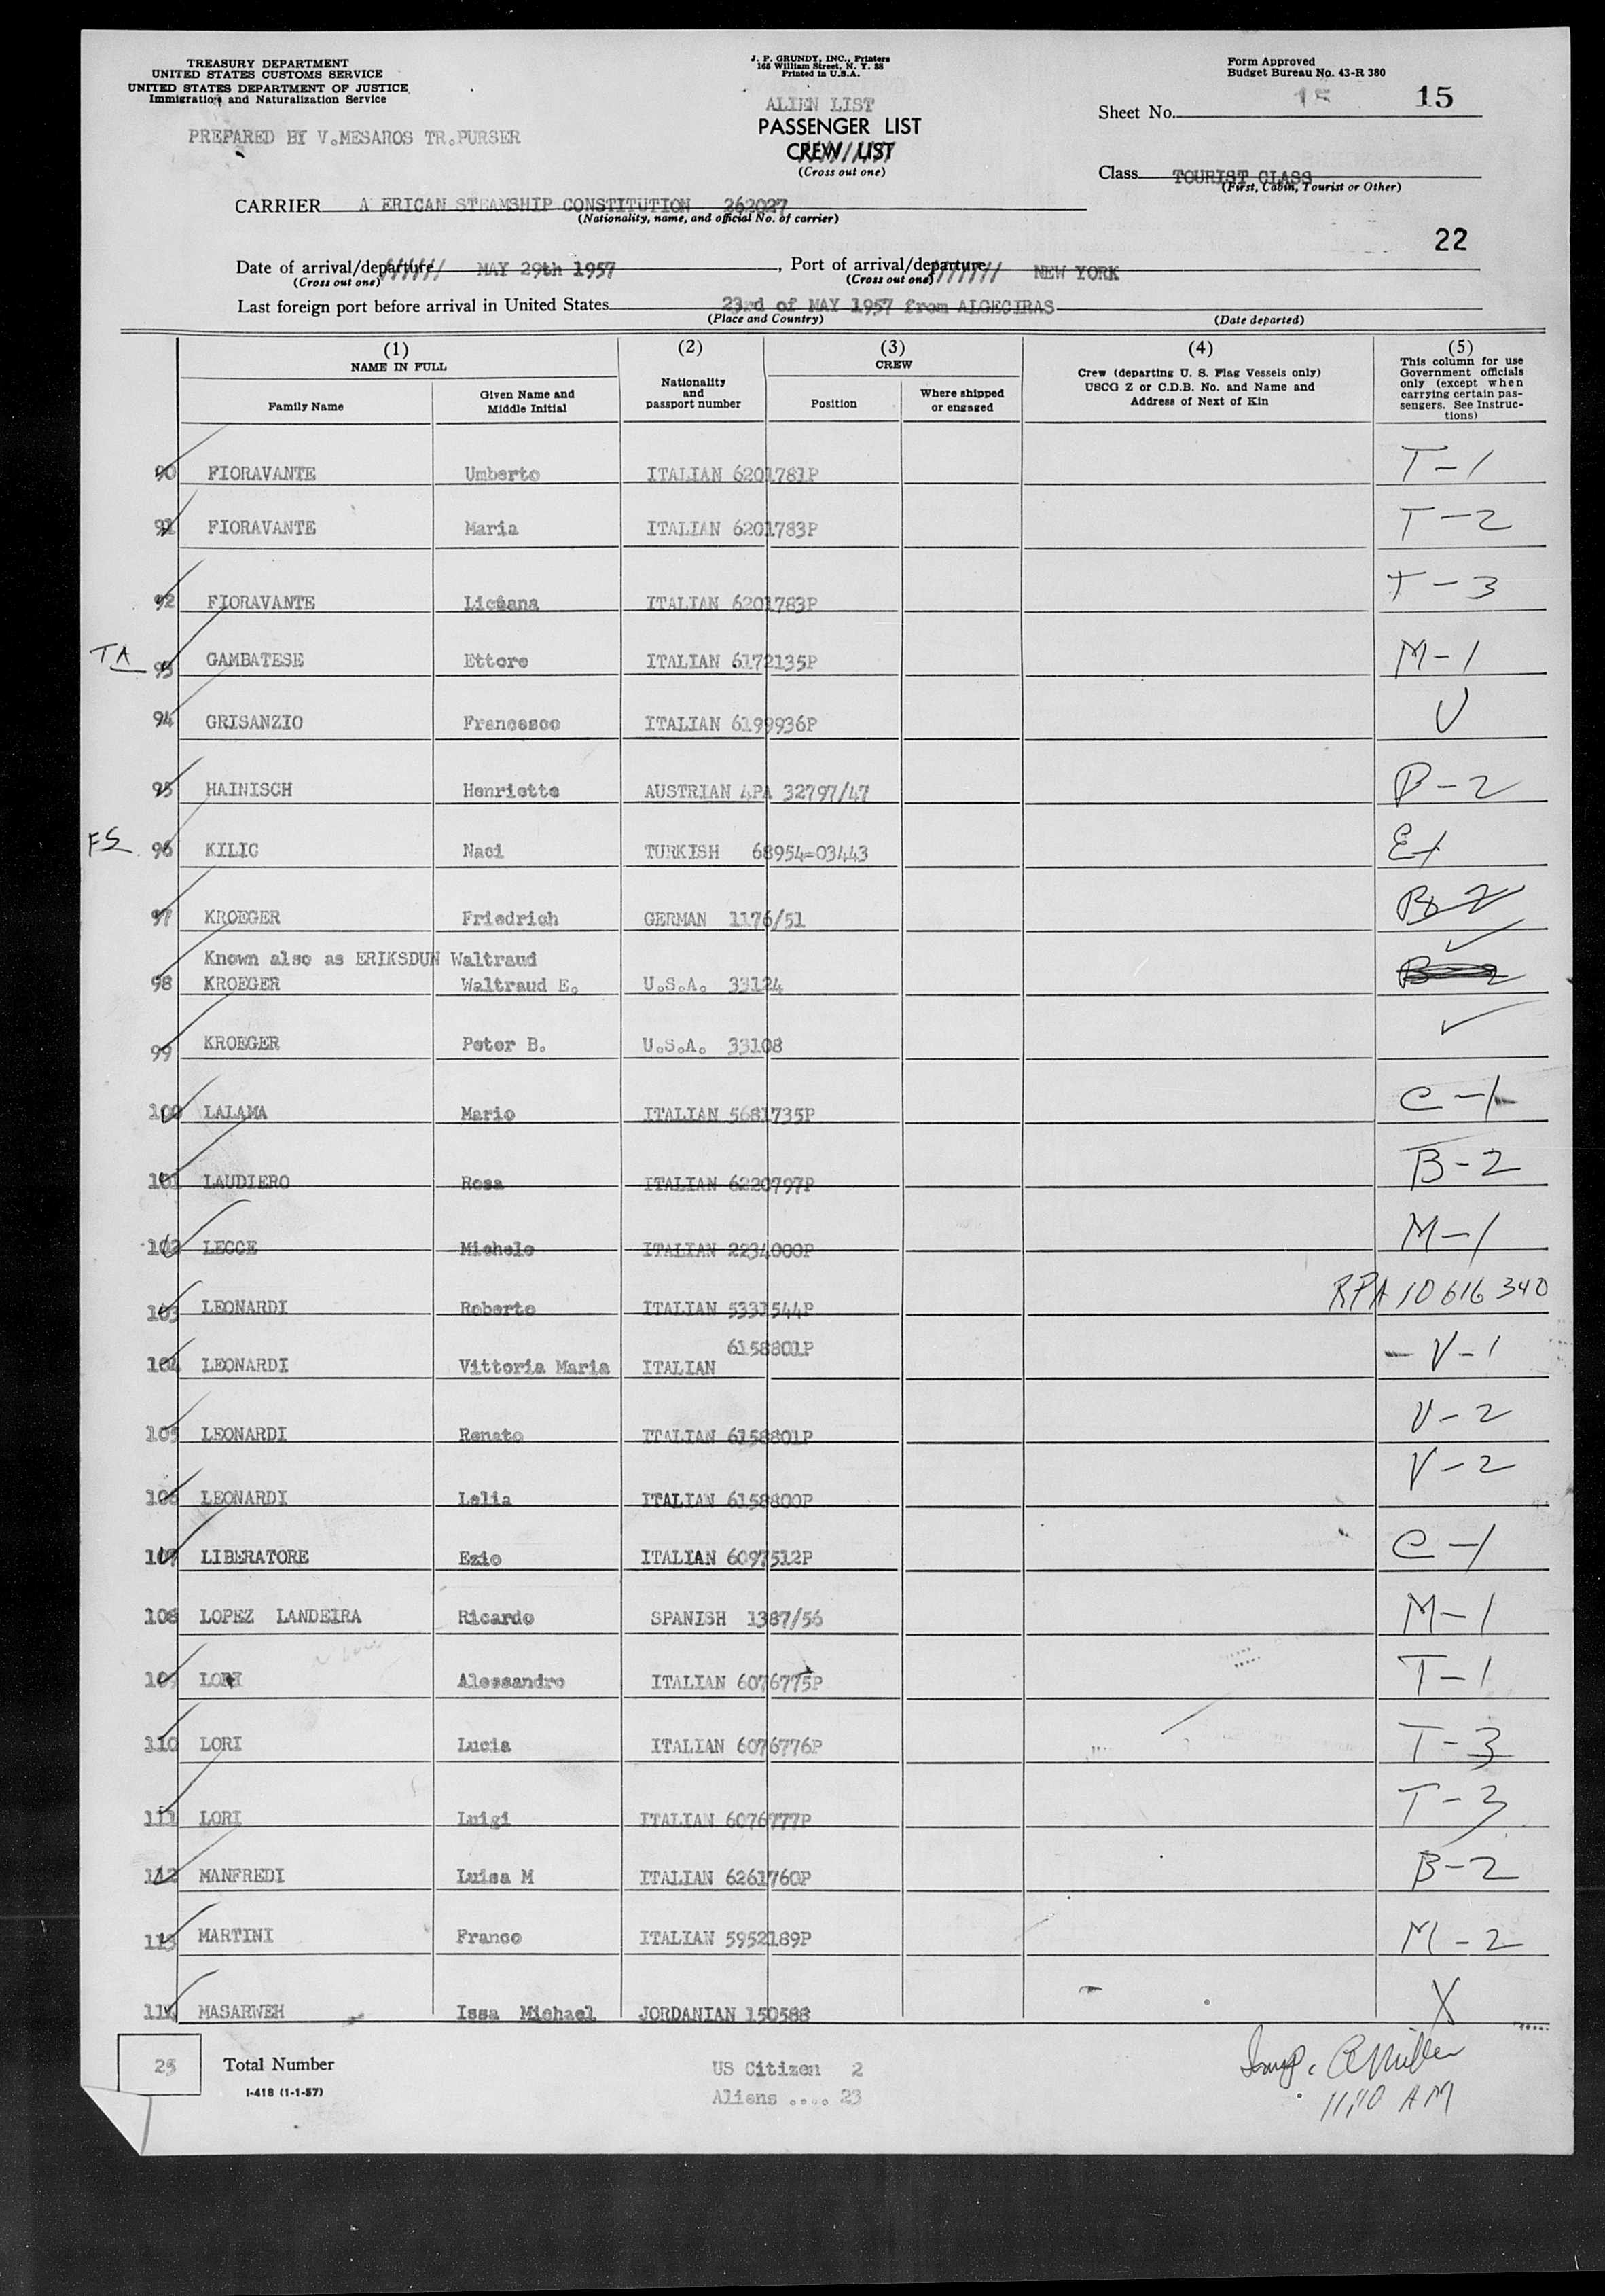 TREASURY DEPARTMENT
UNITED STATES CUSTOMS SERVICE
UNITED STATES DEPARTMENT OF JUSTICE
Immigration and Naturalization Service
PREPARED BY V.MESAROS TR.PURSER
J. P. GRUNDY, INC., Printers
165 William Street, N. Y. 38
Printed in U.S.A.
ALIEN LIST
PASSENGER LIST
CREW LIST
(Cross out one)
Form Approved
Budget Bureau No. 43-R 380
Sheet No. 15 15
Class TOURIST CLASS
(First, Cabin, Tourist or Other)
CARRIER A ERICAN STEAMSHIP CONSTITUTION 262027
(Nationality, name, and official No. of carrier)
22
Date of arrival/departure MAY 29th 1957, Port of arrival/departure NEW YORK
(Cross out one) (Cross out one)
Last foreign port before arrival in United States 23rd of MAY 1957 from ALGECIRAS
(Place and Country) (Date departed)
(1) NAME IN FULL
Family Name
Given Name and Middle Initial
(2)
Nationality and passport number
(3) CREW
Position
Where shipped or engaged
(4)
Crew (departing U. S. Flag Vessels only)
USCG Z or C.D.B. No. and Name and
Address of Next of Kin
(5)
This column for use
Government officials
only (except when
carrying certain pas-
sengers. See Instruc-
tions)
90 FIORAVANTE Umberto ITALIAN 6201781P T-1
91 FIORAVANTE Maria ITALIAN 6201783P T-2
92 FIORAVANTE ITALIAN 6201783P T-3
TA 93 GAMBATESE Ettore ITALIAN 6172135P M-1
94 GRISANZIO Francesco ITALIAN 6199936P U
95 HAINISCH Henriette AUSTRIAN APA 32797/47 B-2
FS 96 KILIC Naci TURKISH 68954=03443 E1
97 KROEGER Friedrich GERMAN 1176/51 B-2
Known also as ERIKSDUN Waltraud
98 KROEGER Waltraud E. U.S.A. 33124 B-2
99 KROEGER Peter B. U.S.A. 33108
100 LALAMA Mario ITALIAN 5681735P C-1
101 LAUDIERO Rosa ITALIAN 6220797P B-2
102 LECCE Michele ITALIAN 2234000P M-1
103 LEONARDI Roberto ITALIAN 5331544P RPA 10 616 340
104 LEONARDI Vittoria Maria ITALIAN 6158801P V-1
105 LEONARDI Renato ITALIAN 6158801P V-2
106 LEONARDI Lelia ITALIAN 6158800P V-2
107 LIBERATORE Ezio ITALIAN 6097512P C-1
108 LOPEZ LANDEIRA Ricardo SPANISH 1387/56 M-1
109 LORI Alessandro ITALIAN 6076775P T-1
110 LORI Lucia ITALIAN 6076776P T-3
111 LORI Luigi ITALIAN 6076777P T-3
112 MANFREDI Luisa M ITALIAN 6261760P B-2
113 MARTINI Franco ITALIAN 5952189P M-2
114 MASARWEH Issa Michael JORDANIAN 150588 X
25 Total Number
I-418 (1-1-57)
US Citizen 2
Aliens .... 23
11,10 AM